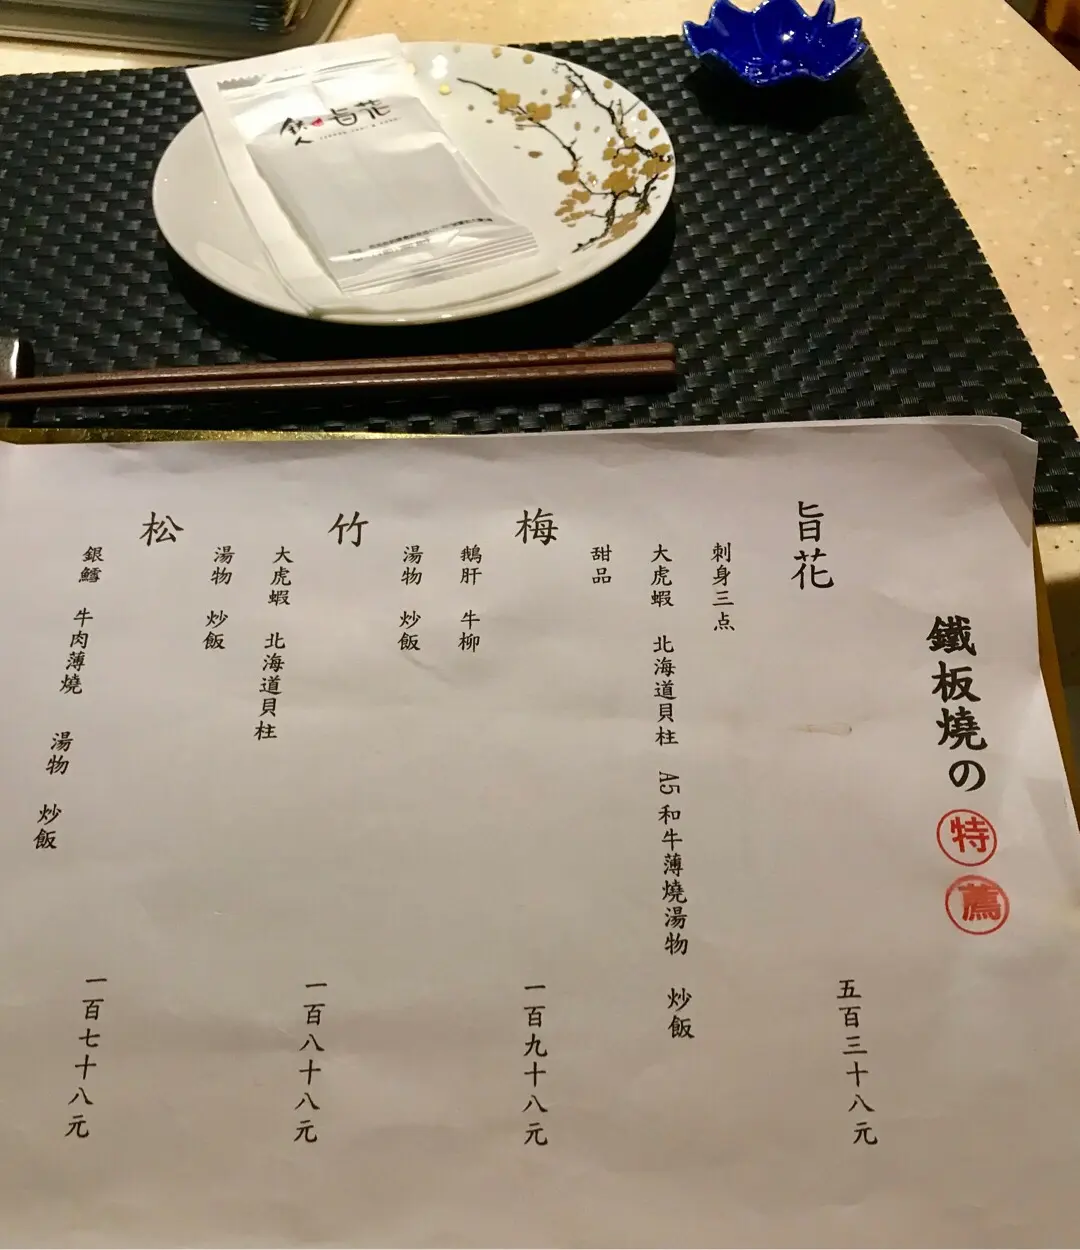 旨花
鐵板燒の
特
薦
旨花
五百三十八元
刺身三点
大虎蝦 北海道貝柱 A5 和牛薄燒湯物 炒飯
甜品
梅
一百九十八元
鵝肝 牛柳
湯物 炒飯
竹
一百八十八元
大虎蝦 北海道貝柱
湯物 炒飯
松
一百七十八元
銀鱈 牛肉薄燒 湯物 炒飯